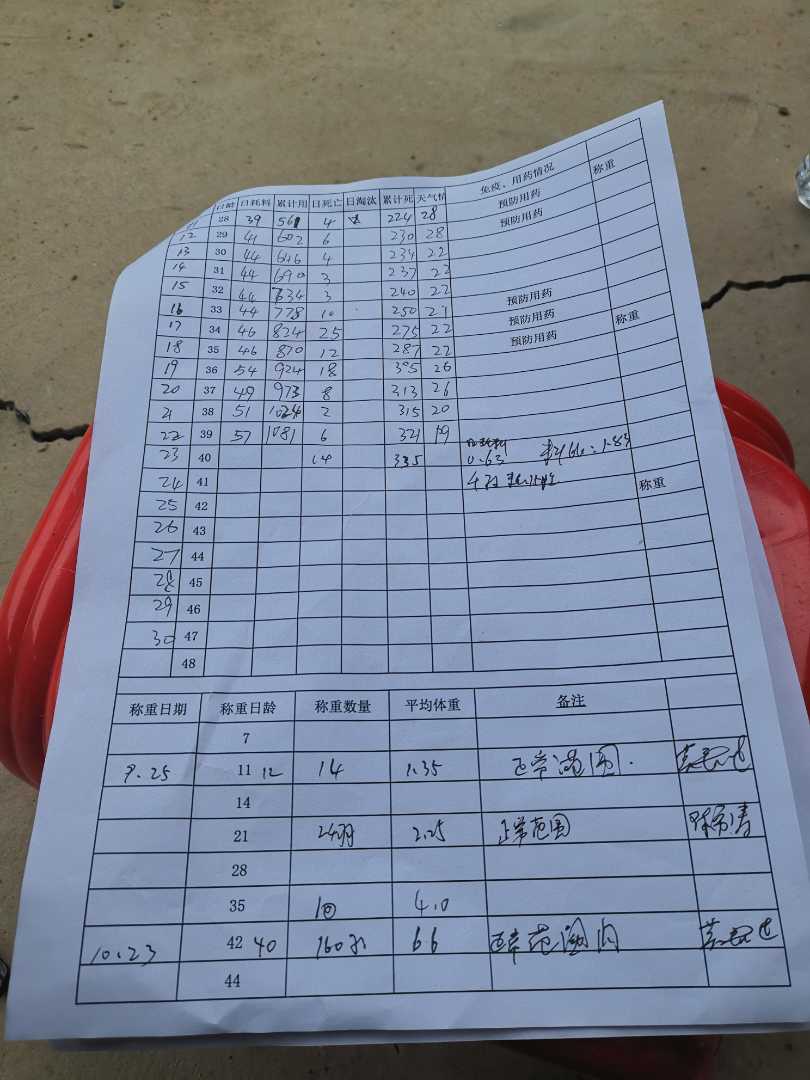 日龄 日耗料 累计用 日死亡 日淘汰 累计死 天气情 免疫、用药情况 称重
28 39 561 4 224 28 预防用药
12 29 41 602 6 230 28 预防用药
13 30 44 646 4 234 22
14 31 44 690 3 237 22
15 32 44 734 3 240 22
16 33 44 778 10 250 21 预防用药
17 34 46 824 25 275 22 预防用药
18 35 46 870 12 287 22 预防用药 称重
19 36 54 924 18 305 26
20 37 49 973 8 313 26
21 38 51 1024 2 315 20
22 39 57 1081 6 321 19
23 40 14 335 0.63
24 41
25 42 称重
26 43
27 44
28 45
29 46
30 47
48
称重日期 称重日龄 称重数量 平均体重 备注
7
9.25 11 12 14 1.35 正常范围.
14
21 24羽 2.25 正常范围
28
35 10 4.0
10.23 42 40 160 6.6 正常范围内
44